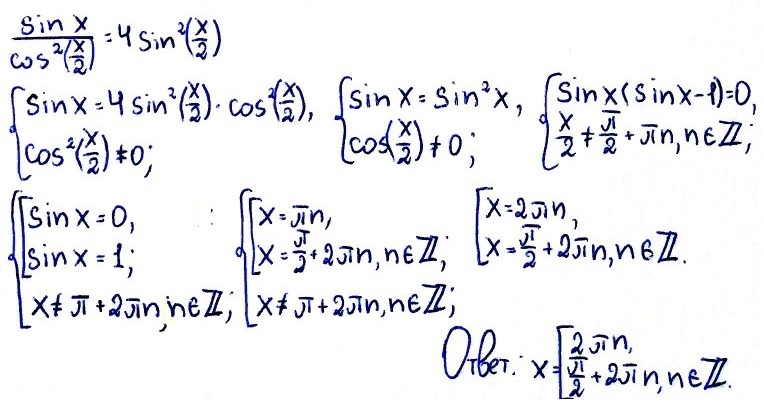 sin x / cos²(x/2) = 4 sin²(x/2)
{ sin x = 4 sin²(x/2) · cos²(x/2), cos²(x/2) ≠ 0; { sin x = sin²x, cos(x/2) ≠ 0; { sin x (sin x - 1) = 0, x/2 ≠ π/2 + πn, n ∈ ℤ;
{ [ sin x = 0, sin x = 1; x ≠ π + 2πn, n ∈ ℤ; { [ x = πn, x = π/2 + 2πn, n ∈ ℤ; x ≠ π + 2πn, n ∈ ℤ; [ x = 2πn, x = π/2 + 2πn, n ∈ ℤ.
Ответ: x = [ 2πn, π/2 + 2πn, n ∈ ℤ.